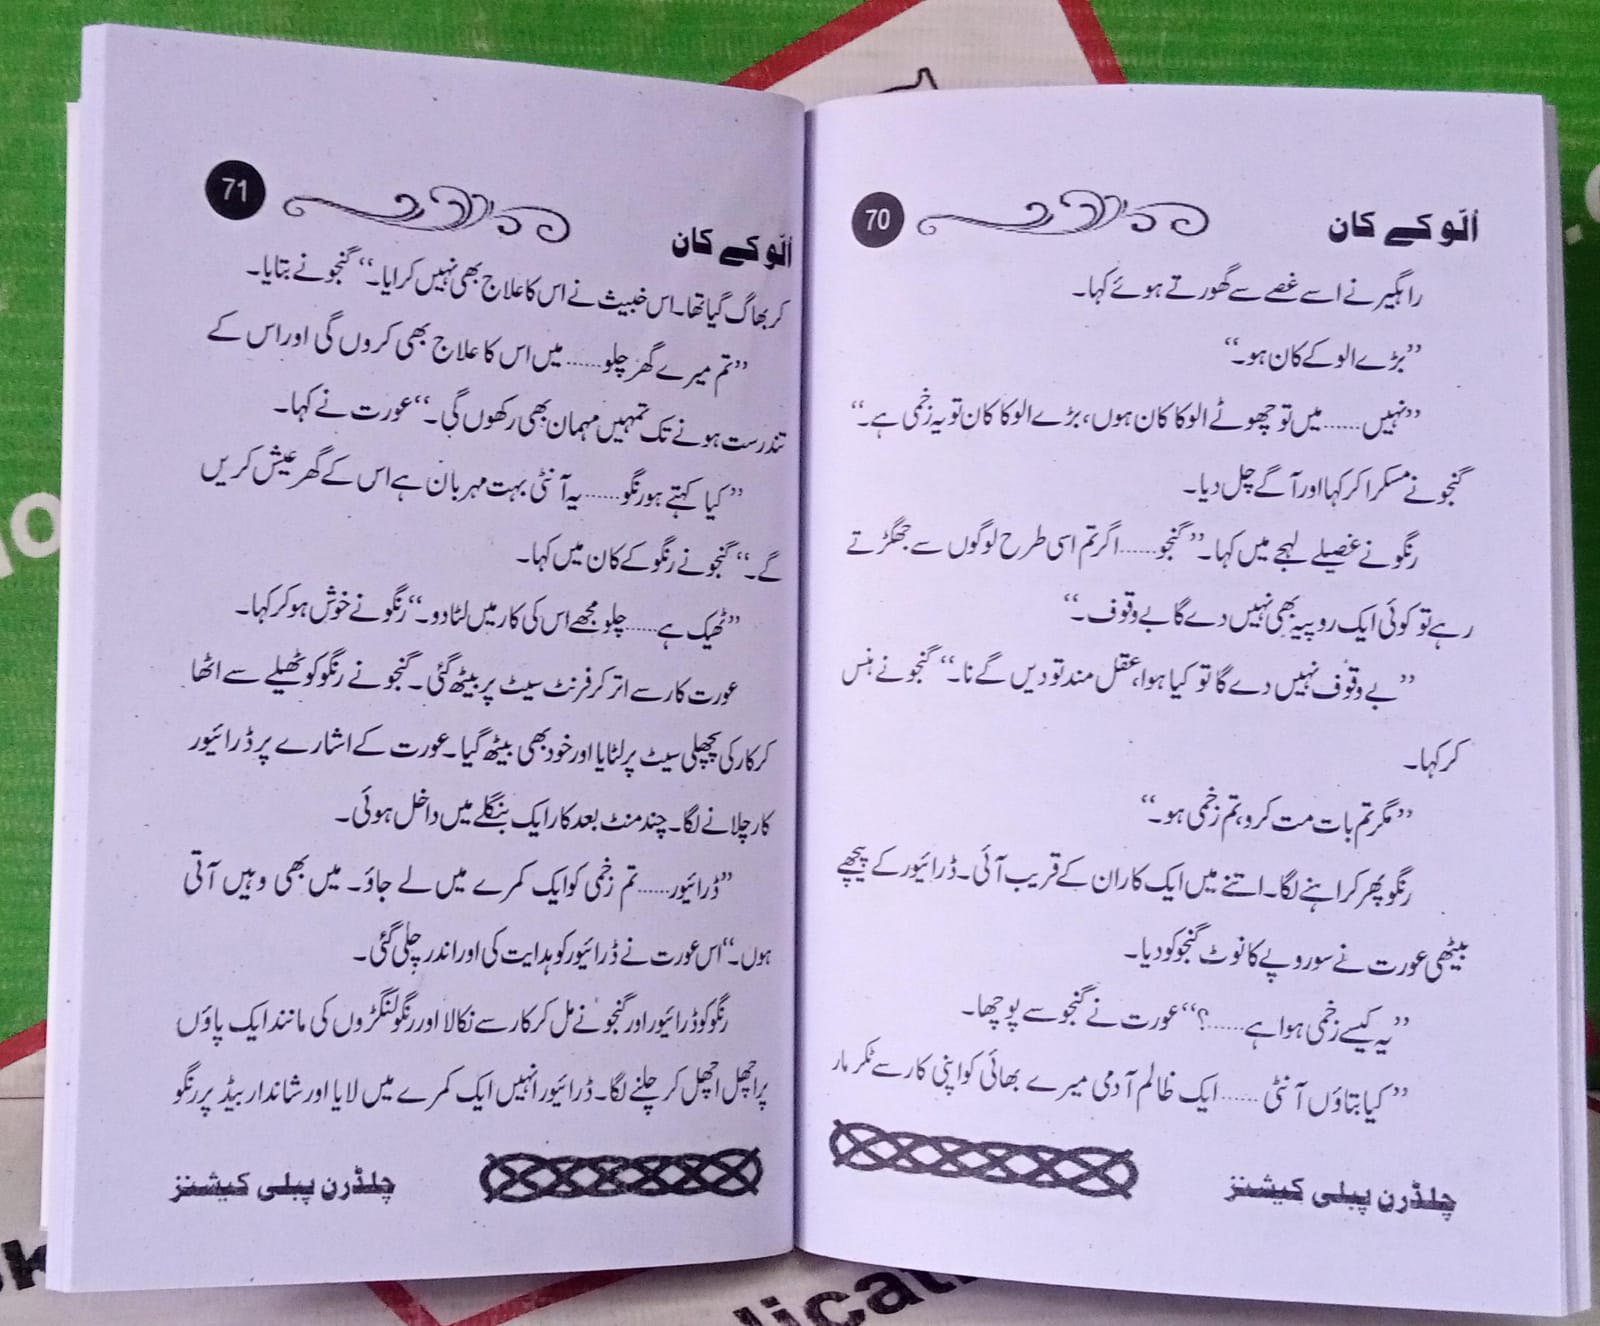 اُلّو کے کان
70
راہگیر نے اسے غصے سے گھورتے ہوئے کہا۔
”بڑے الو کے کان ہو۔“
”نہیں...... میں تو چھوٹے الو کا کان ہوں، بڑے الو کا کان تو یہ زخمی ہے۔“
گنجو نے مسکرا کر کہا اور آگے چل دیا۔
رنگو نے غصیلے لہجے میں کہا۔ ”گنجو...... اگر تم اسی طرح لوگوں سے جھگڑتے
رہے تو کوئی ایک روپیہ بھی نہیں دے گا بے وقوف۔“
”بے وقوف نہیں دے گا تو کیا ہوا، عقل مند تو دیں گے نا۔“ گنجو نے ہنس
کر کہا۔
”مگر تم بات مت کرو، تم زخمی ہو۔“
رنگو پھر کراہنے لگا۔ اتنے میں ایک کار ان کے قریب آئی۔ ڈرائیور کے پیچھے
بیٹھی عورت نے سو روپے کا نوٹ گنجو کو دیا۔
”یہ کیسے زخمی ہوا ہے......؟“ عورت نے گنجو سے پوچھا۔
”کیا بتاؤں آنٹی...... ایک ظالم آدمی میرے بھائی کو اپنی کار سے ٹکر مار
چلڈرن پبلی کیشنز
اُلّو کے کان
71
کر بھاگ گیا تھا۔ اس خبیث نے اس کا علاج بھی نہیں کرایا۔“ گنجو نے بتایا۔
”تم میرے گھر چلو...... میں اس کا علاج بھی کروں گی اور اس کے
تندرست ہونے تک تمہیں مہمان بھی رکھوں گی۔“ عورت نے کہا۔
”کیا کہتے ہو رنگو...... یہ آنٹی بہت مہربان ہے اس کے گھر عیش کریں
گے۔“ گنجو نے رنگو کے کان میں کہا۔
”ٹھیک ہے...... چلو مجھے اس کی کار میں لٹا دو۔“ رنگو نے خوش ہو کر کہا۔
عورت کار سے اتر کر فرنٹ سیٹ پر بیٹھ گئی۔ گنجو نے رنگو کو ٹھیلے سے اٹھا
کر کار کی پچھلی سیٹ پر لٹایا اور خود بھی بیٹھ گیا۔ عورت کے اشارے پر ڈرائیور
کار چلانے لگا۔ چند منٹ بعد کار ایک بنگلے میں داخل ہوئی۔
”ڈرائیور...... تم زخمی کو ایک کمرے میں لے جاؤ۔ میں بھی وہیں آتی
ہوں۔“ اس عورت نے ڈرائیور کو ہدایت کی اور اندر چلی گئی۔
رنگو کو ڈرائیور اور گنجو نے مل کر کار سے نکالا اور رنگو لنگڑوں کی مانند ایک پاؤں
پر اچھل اچھل کر چلنے لگا۔ ڈرائیور انہیں ایک کمرے میں لایا اور شاندار بیڈ پر رنگو
چلڈرن پبلی کیشنز